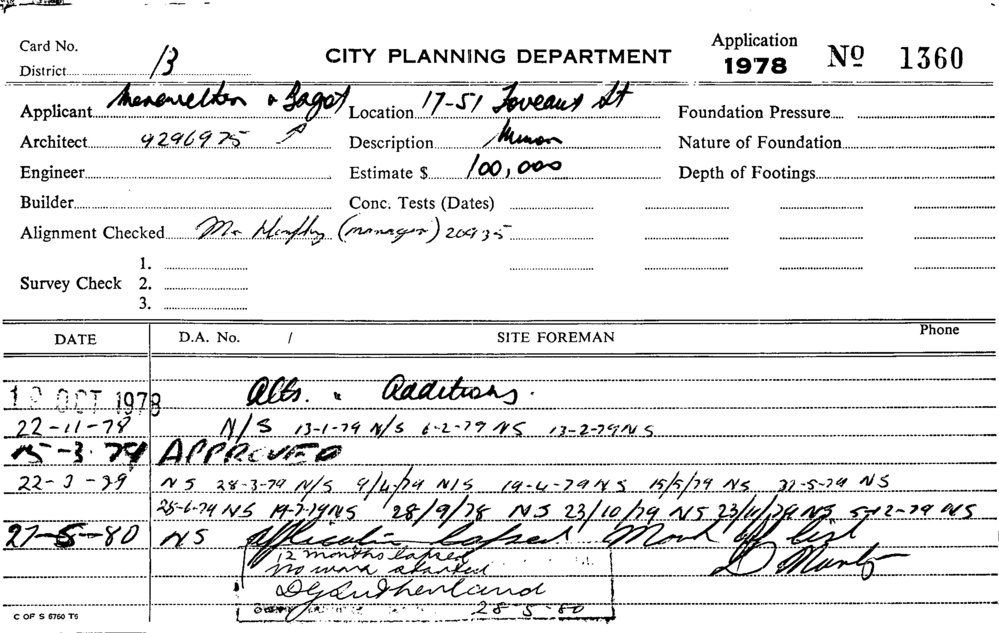 Card No.
District 13
CITY PLANNING DEPARTMENT
Application
1978 Nº 1360
Applicant & Bagot Location 17-51 Foveaux St Foundation Pressure
Architect 9296975 Description Nature of Foundation
Engineer Estimate $ 100,000 Depth of Footings
Builder Conc. Tests (Dates)
Alignment Checked Mr Murphy (manager) 20935
Survey Check 1.
2.
3.
DATE D.A. No. / SITE FOREMAN Phone
OCT 1978 Alts. & Additions.
22-11-78 N/S 13-1-79 N/S 6-2-79 NS 13-2-79 NS
15-3-79 APPROVED
22-3-79 NS 28-3-79 N/S 9/4/79 N/S 19-4-79 NS 15/5/79 NS -5-79 NS
25-6-79 NS 19-7-79 NS 28/9/78 NS 23/10/79 NS 23/11/79 NS 5-12-79 NS
27-5-80 NS Application lapsed Mark off list
12 months lapsed
No work started
D G Sutherland
28-5-80
C OF S 5760 T6